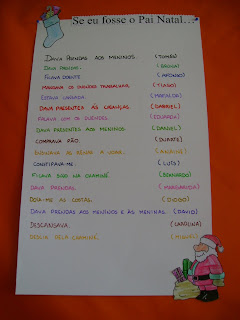 Se eu fosse o Pai Natal...
DAVA PRENDAS AOS MENINOS. (TOMÁS)
DAVA PRENDAS.
FICAVA DOENTE (AFONSO)
MANDAVA OS DUENDES TRABALHAR. (TIAGO)
ESTAVA LINDADA. (MARIA)
DAVA PRESENTES ÀS CRIANÇAS. (GABRIEL)
FALAVA COM OS DUENDES. (EDUARDA)
DAVA PRESENTES AOS MENINOS (DANIEL)
COMPRAVA PÃO. (DUARTE)
RENAS A VOAR.
CONSTIPAVA-ME. (LUÍS)
FICAVA SUJO NA CHAMINÉ. (BERNARDO)
DAVA PRENDAS. (MARGARIDA)
DOÍA-ME AS COSTAS. (DIOGO)
DAVA PRENDAS AOS MENINOS E ÀS MENINAS. (DAVID)
DESCANSAVA. (CAROLINA)
DESCIA PELA CHAMINÉ. (MIGUEL)